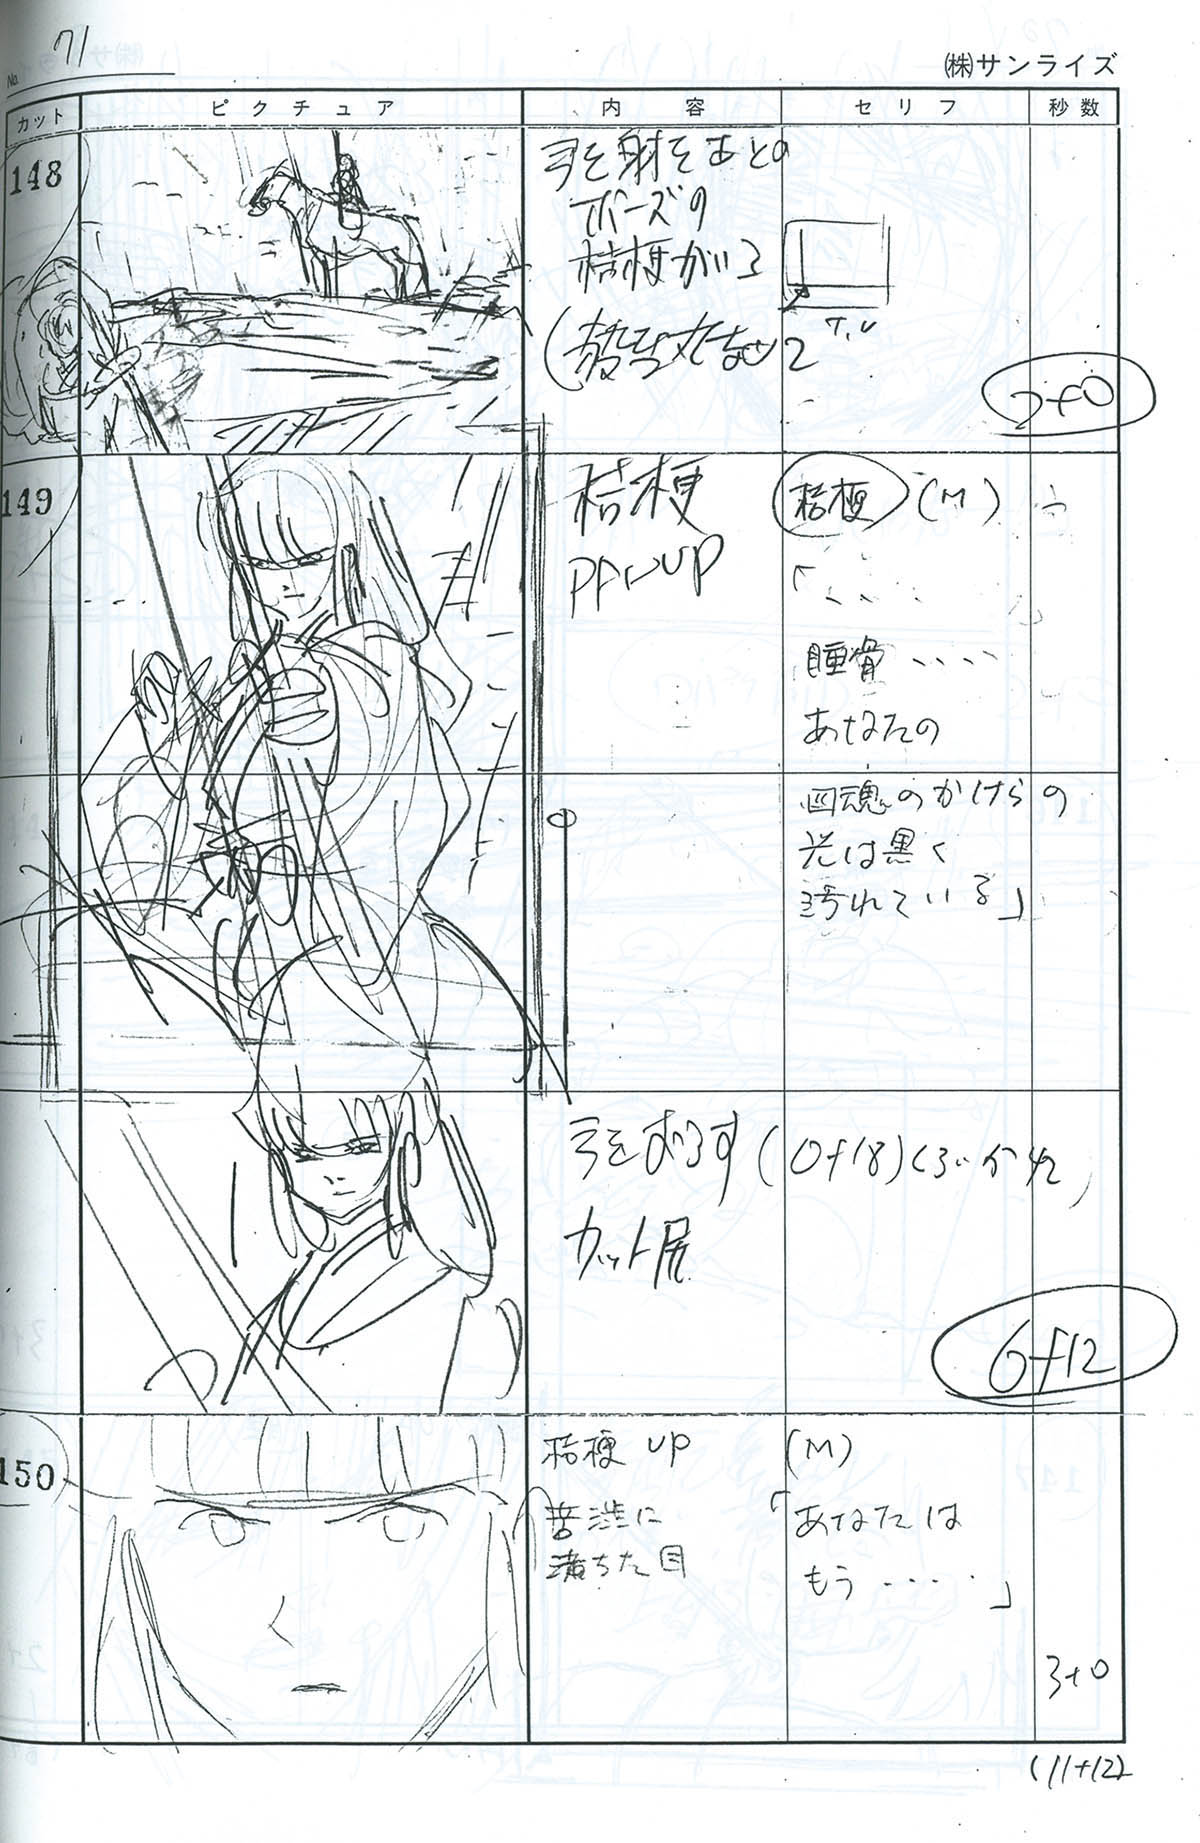 No. 71
(株)サンライズ
カット ピクチュア 内容 セリフ 秒数
148
弓を射をあとの
ポーズの
桔梗がいる
T.U
2+0
149
桔梗
PAN UP
桔梗 (M)
「・・・・
睡骨・・・・
あなたの
四魂のかけらの
光は黒く
汚れている」
弓をおろす (0+18)
カット尻
6+12
150
桔梗 UP
苦渋に
満ちた目
(M)
「あなたは
もう・・・・」
3+0
(11+12)